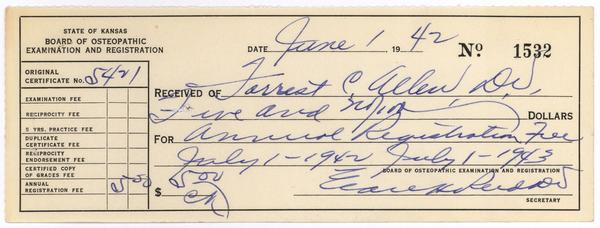 STATE OF KANSAS
BOARD OF OSTEOPATHIC
EXAMINATION AND REGISTRATION
DATE June 1 1942 No 1532
ORIGINAL
CERTIFICATE No. 5421
RECEIVED OF Forrest C. Allen, Dr.,
EXAMINATION FEE
Five and no/100 DOLLARS
RECIPROCITY FEE
5 YRS. PRACTICE FEE
FOR Annual Registration Fee
DUPLICATE
CERTIFICATE FEE
RECIPROCITY
ENDORSEMENT FEE
July 1-1942 July 1-1943
CERTIFIED COPY
OF GRADES FEE
BOARD OF OSTEOPATHIC EXAMINATION AND REGISTRATION
ANNUAL
REGISTRATION FEE 5 00
$ 5.00
ck
SECRETARY